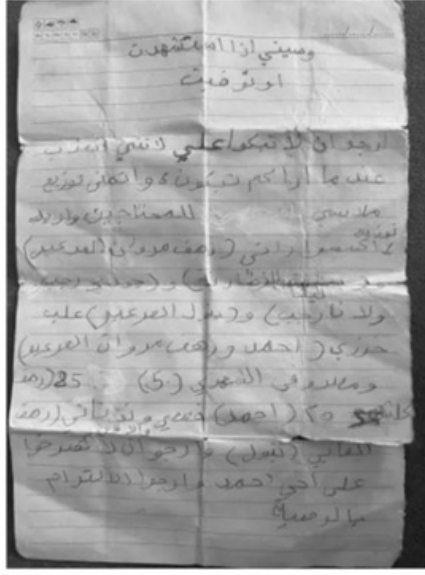 وصيتي إذا استشهدت
او توفيت
ارجو ان لا تبكوا علي لانني اتعذب
عندما اراكم تبكون و اتمنى توزيع
ملابسي للمحتاجين و اريد
توزيع
اكسسواراتي (رهف مروان المدعير)
و و (جوليا رجب)
ولانا رجب) و (بتول المدعير) علب
خرزي (احمد ورهف مروان المدعير)
ومصروفي الشهري (50) 25 (رهف
25 (احمد) قصصي و (رهف
العابي (بتول) وارجو ان لا تصرخوا
على اخي احمد وارجوا الالتزام
بالوصية